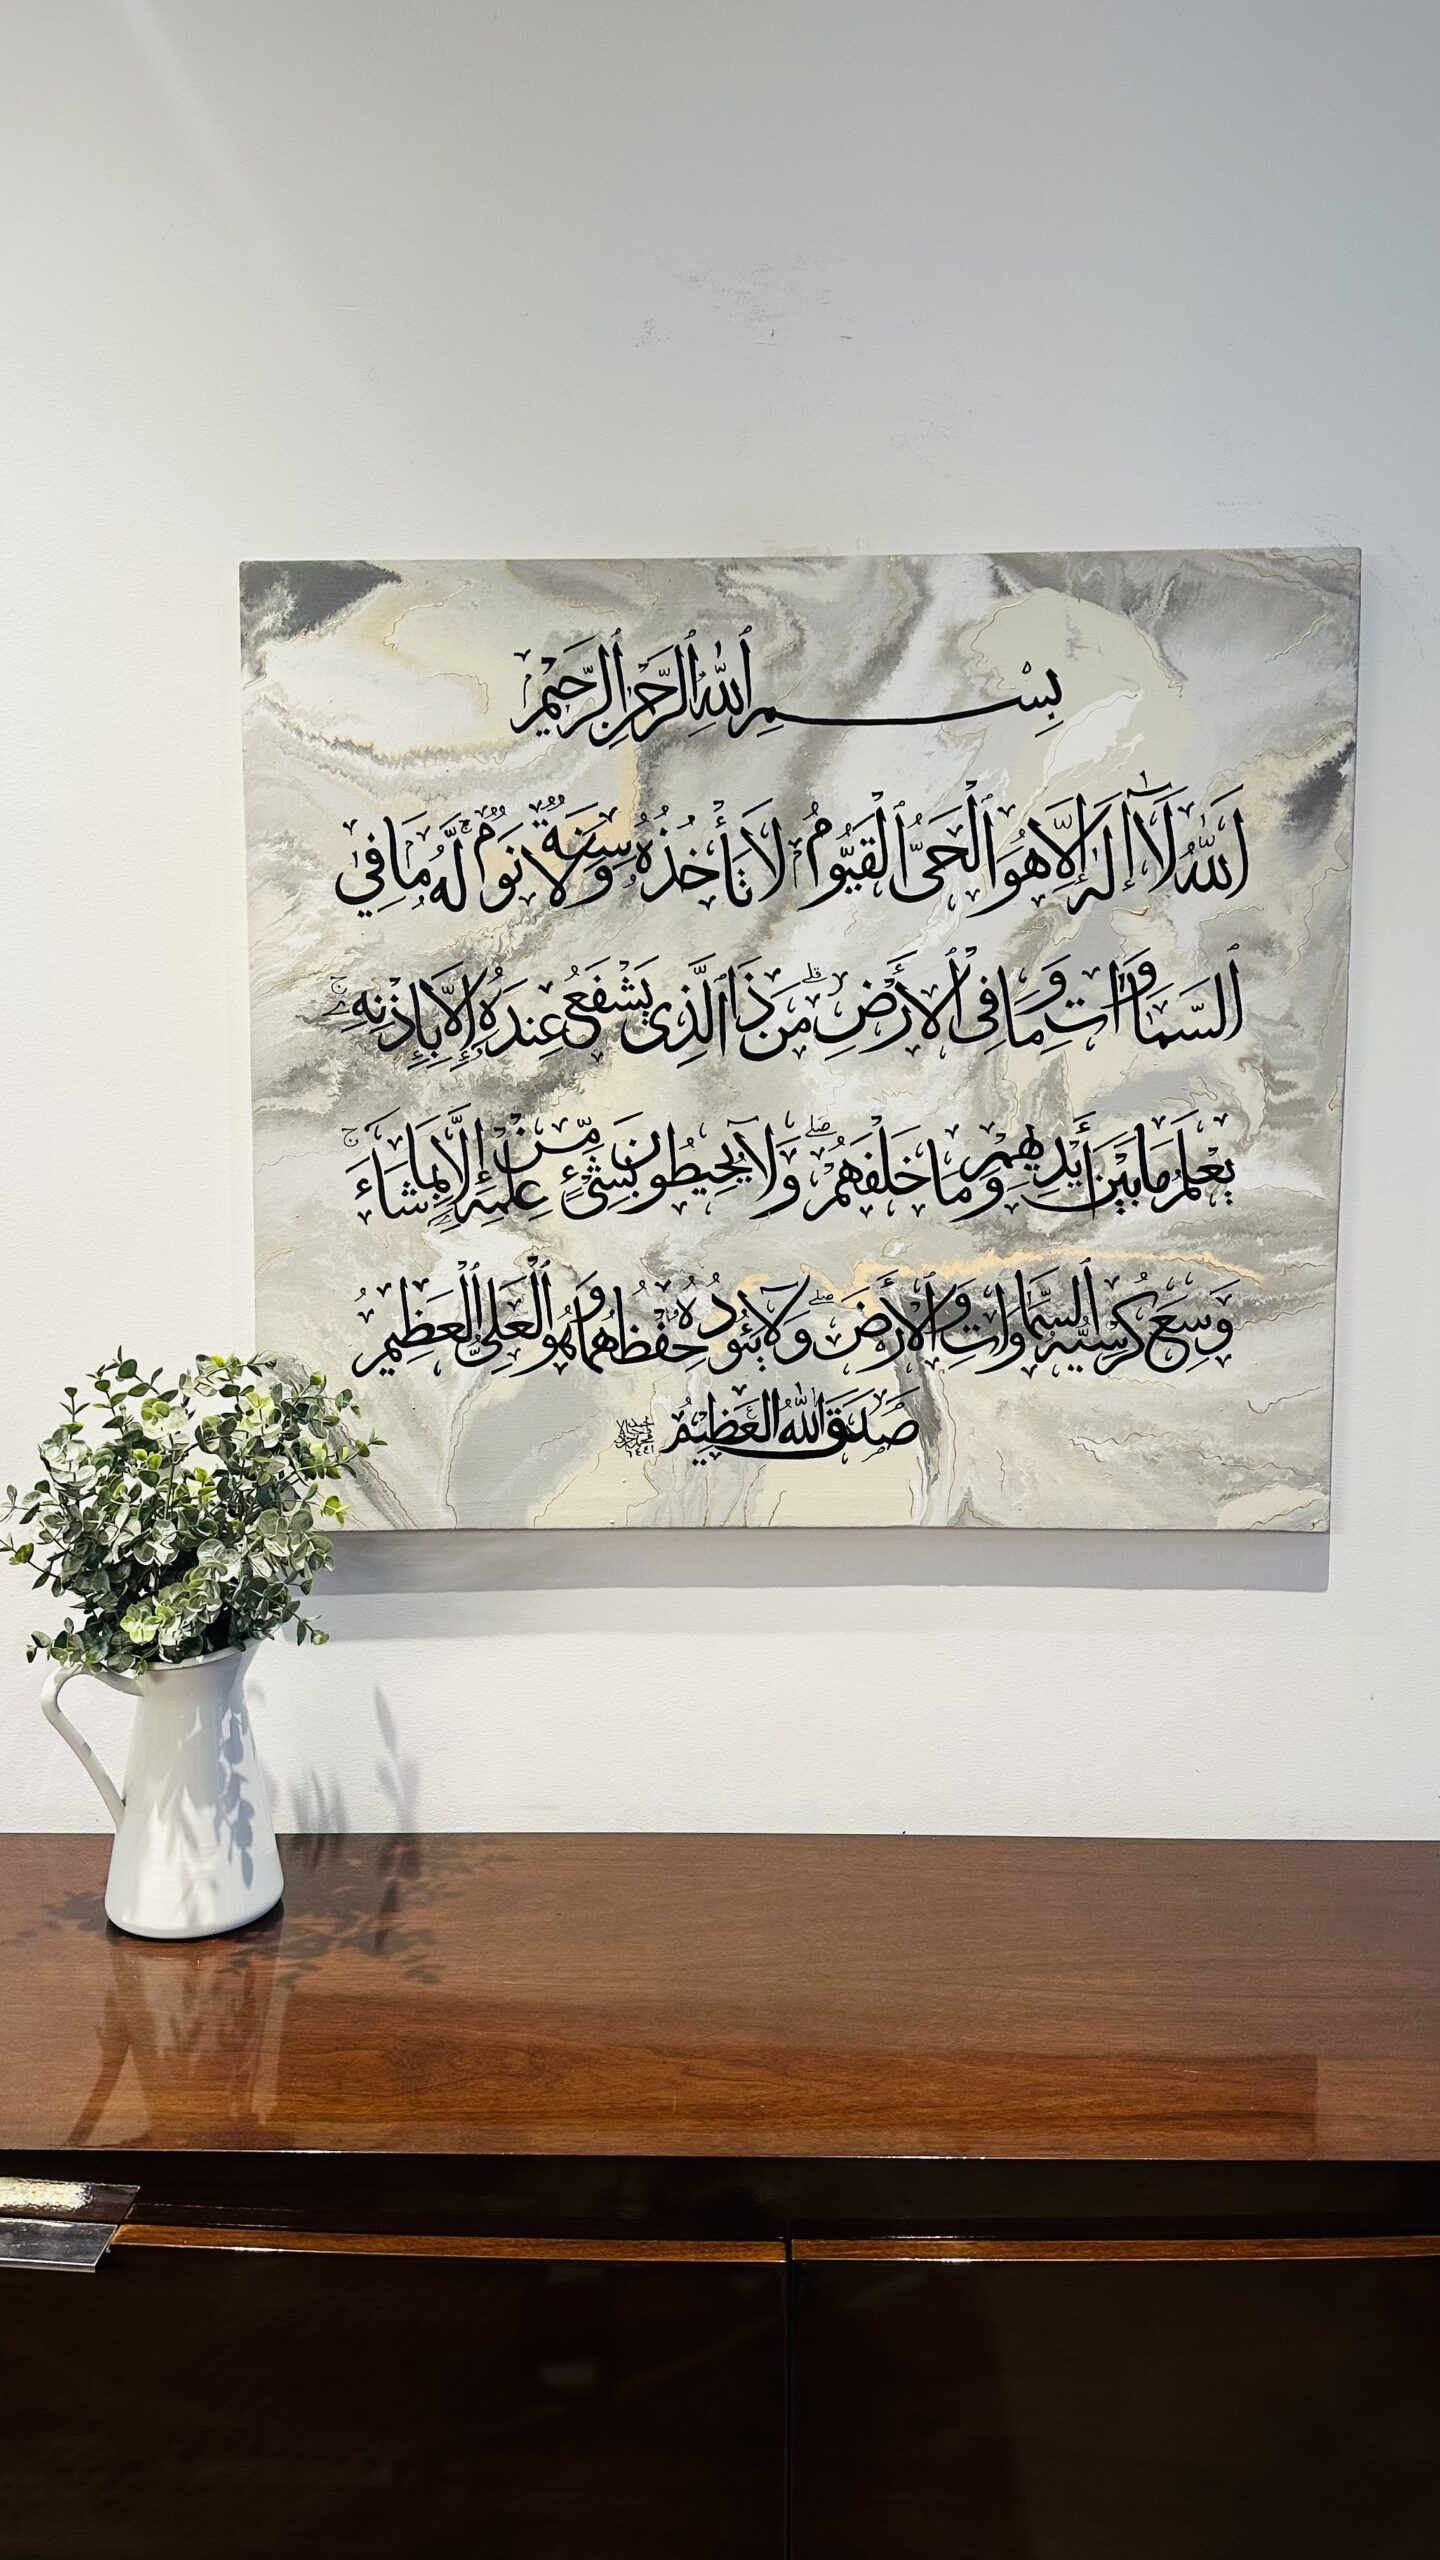 بِسْمِ ٱللَّهِ ٱلرَّحْمَٰنِ ٱلرَّحِيمِ
ٱللَّهُ لَآ إِلَٰهَ إِلَّا هُوَ ٱلْحَىُّ ٱلْقَيُّومُ ۚ لَا تَأْخُذُهُۥ سِنَةٌ وَلَا نَوْمٌ ۚ لَّهُۥ مَا فِي
ٱلسَّمَاوَاتِ وَمَا فِى ٱلْأَرْضِ ۗ مَن ذَا ٱلَّذِى يَشْفَعُ عِندَهُۥٓ إِلَّا بِإِذْنِهِۦ ۚ
يَعْلَمُ مَا بَيْنَ أَيْدِيهِمْ وَمَا خَلْفَهُمْ ۖ وَلَا يُحِيطُونَ بِشَىْءٍ مِّنْ عِلْمِهِۦٓ إِلَّا بِمَا شَآءَ ۚ
وَسِعَ كُرْسِيُّهُ ٱلسَّمَاوَاتِ وَٱلْأَرْضَ ۖ وَلَا يَئُودُهُۥ حِفْظُهُمَا ۚ وَهُوَ ٱلْعَلِىُّ ٱلْعَظِيمُ
صَدَقَ اللَّهُ الْعَظِيمُ